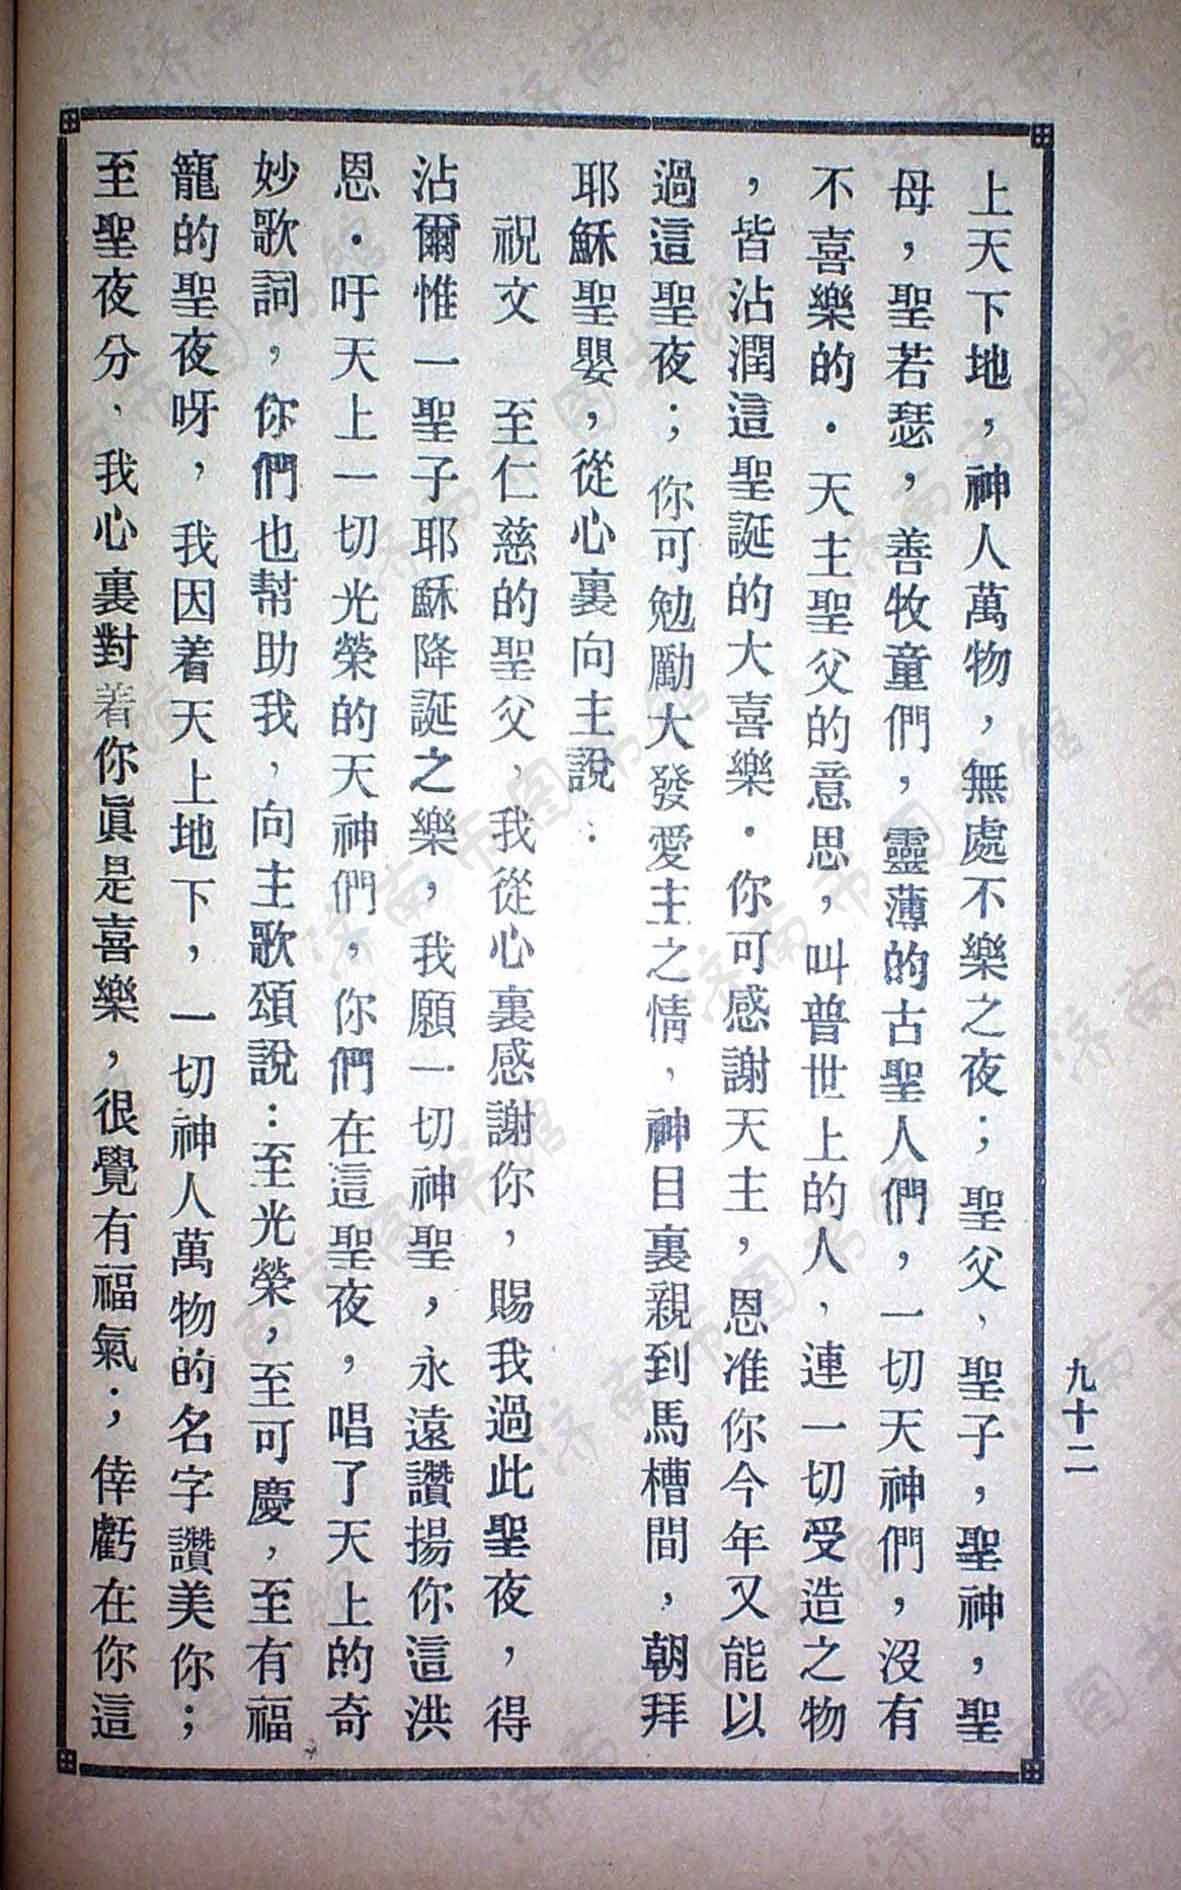 上天下地，神人萬物，無處不樂之夜；聖父、聖子，聖神，聖
母，聖若瑟，善牧童們，靈薄的古聖人們，一切天神們，沒有
不喜樂的．天主聖父的意思，叫普世上的人、連一切受造之物
，皆沾潤這聖誕的大喜樂．你可感謝天主，恩准你今年又能以
過這聖夜；你可勉勵大發愛主之情，神目裏親到馬槽間，朝拜
耶穌聖嬰，從心裏向主說．
祝文　至仁慈的聖父、我從心裏感謝你，賜我過此聖夜，得
沾爾惟一聖子耶穌降誕之樂，我願一切神聖，永遠讚揚你這洪
恩．吁天上一切光榮的天神們，你們在這聖夜，唱了天上的奇
妙歌詞，你們也幫助我、向主歌頌說：至光榮，至可慶，至有福
寵的聖夜呀，我因着天上地下，一切神人萬物的名字讚美你；
至聖夜分、我心裏對着你眞是喜樂，很覺有福氣；倖虧在你這
九十二
济南市图书馆